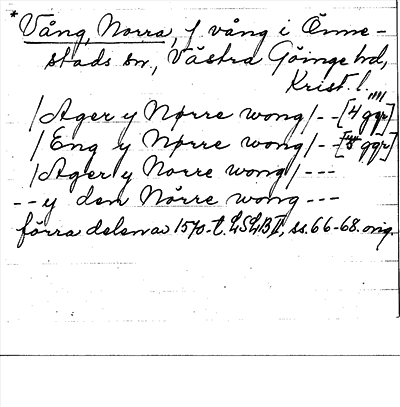 * Vång, Norra, f vång i Önne-
stads sn., Västra Göinge hd,
Krist. l.
/Ager y Nørre wong/ - - [4 ggr]
/Eng y Nørre wong/ - - [ ggr]
/Ager y Norre wong/ - - -
- - y den Nörre wong - - -
förra delen av 1570-t. LSLB II, ss. 66-68. orig.